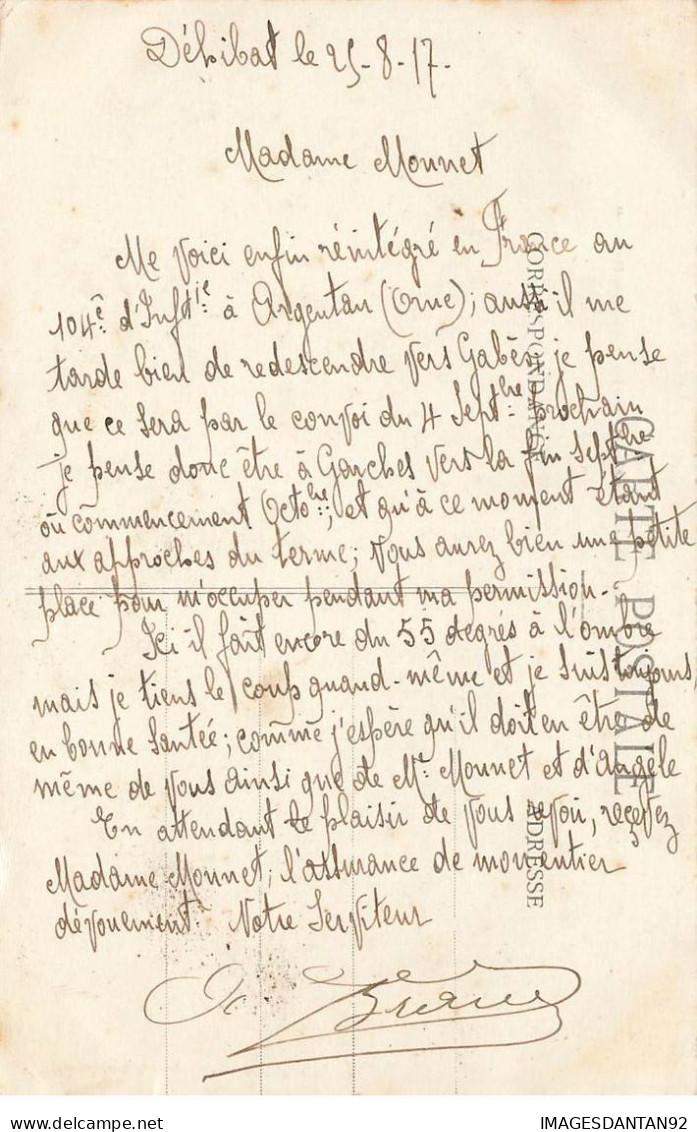 Déhibat le 25-8-17-
Madame Monnet
Me voici enfin réintégré en France au
104e d'Inftie à Argentan (Orne); aussi il me
tarde bien de redescendre vers Gabès, je pense
que ce sera par le convoi du 4 Septbre prochain
je pense donc être à Garches vers la fin Septbre
où commencement Octobre; et qu'à ce moment étant
aux approches du terme; vous aurez bien une petite
place pour m'occuper pendant ma permission-
Ici il fait encore du 55 degrés à l'ombre
mais je tiens le coup quand-même et je suis toujours
en bonne Santée; comme j'espère qu'il doit en être de
même de vous ainsi que de Mr. Monnet et d'Angèle
En attendant le plaisir de vous revoir, reçevez
Madame Monnet, l'assurance de mon entier
dévouement. Votre Serviteur
CORRESPONDANCE
CARTE POSTALE
ADRESSE
IMAGESDANTAN92